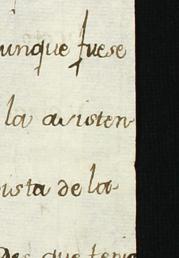 unque fuese
la avisten
vista de la
que tenia